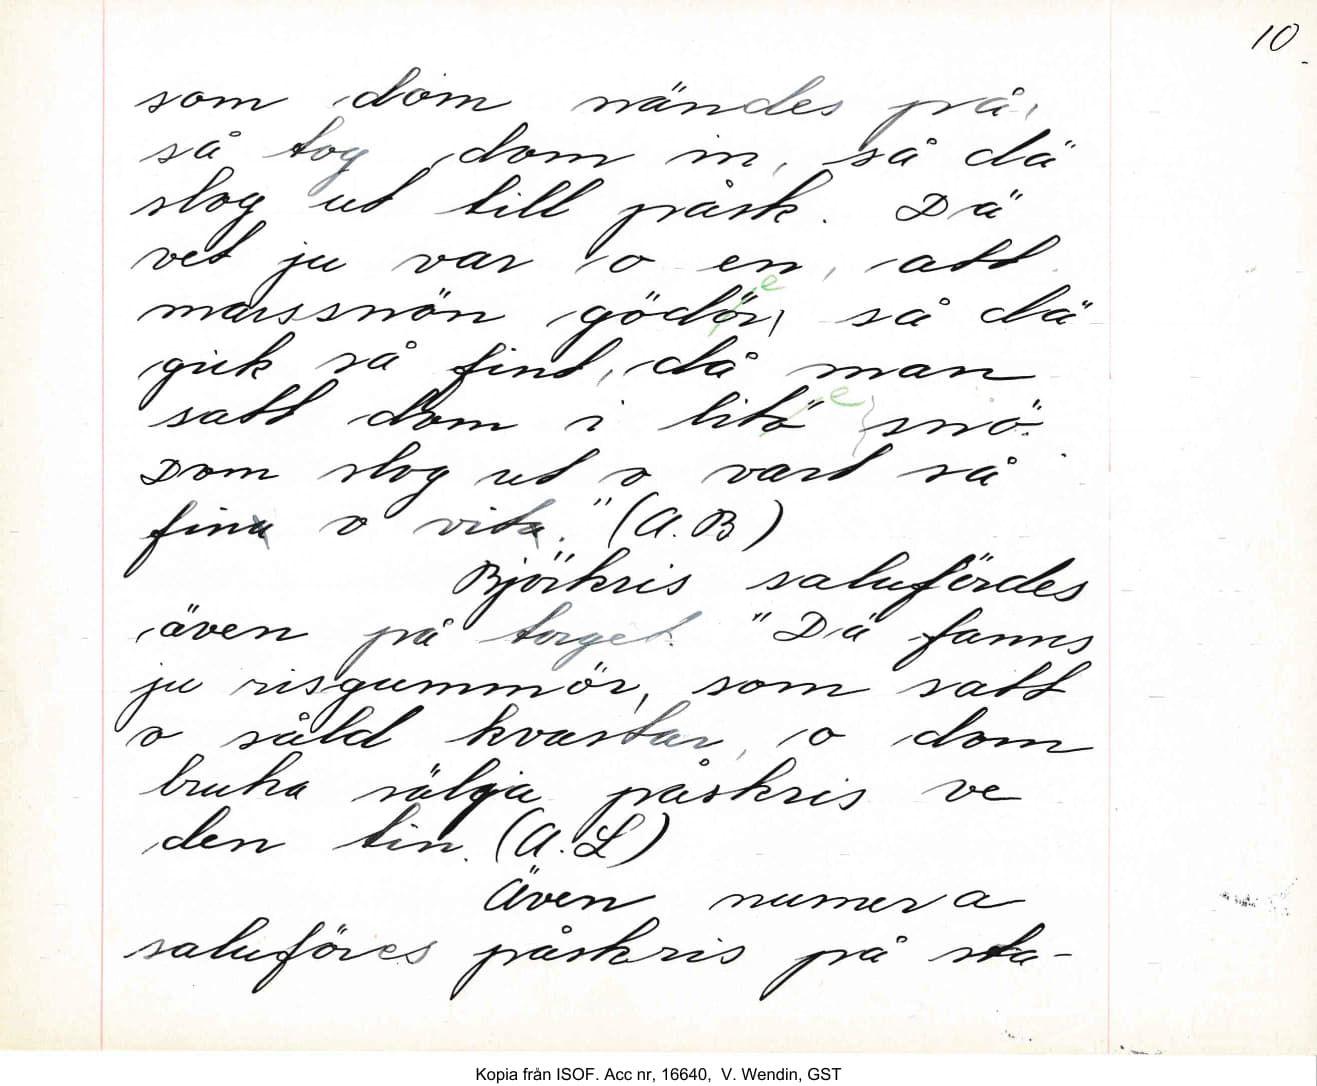 10
som dom vändes på,
så tog dom in, så dä
slog ut till påsk. Dä
vet ju var o en, att
marssnön gödör, så dä
gick så fint, då man
satt dom i litö snö.
Dom slog ut o vart så
fina o vita." (A.B)
Björkris salufördes
även på torget. "Dä fanns
ju risgummör, som satt
o såld kvastar, o dom
bruka sälja påskris ve
den tin. (A.L)
Även numera
saluföres påskris på sta-
Kopia från ISOF. Acc nr, 16640, V. Wendin, GST